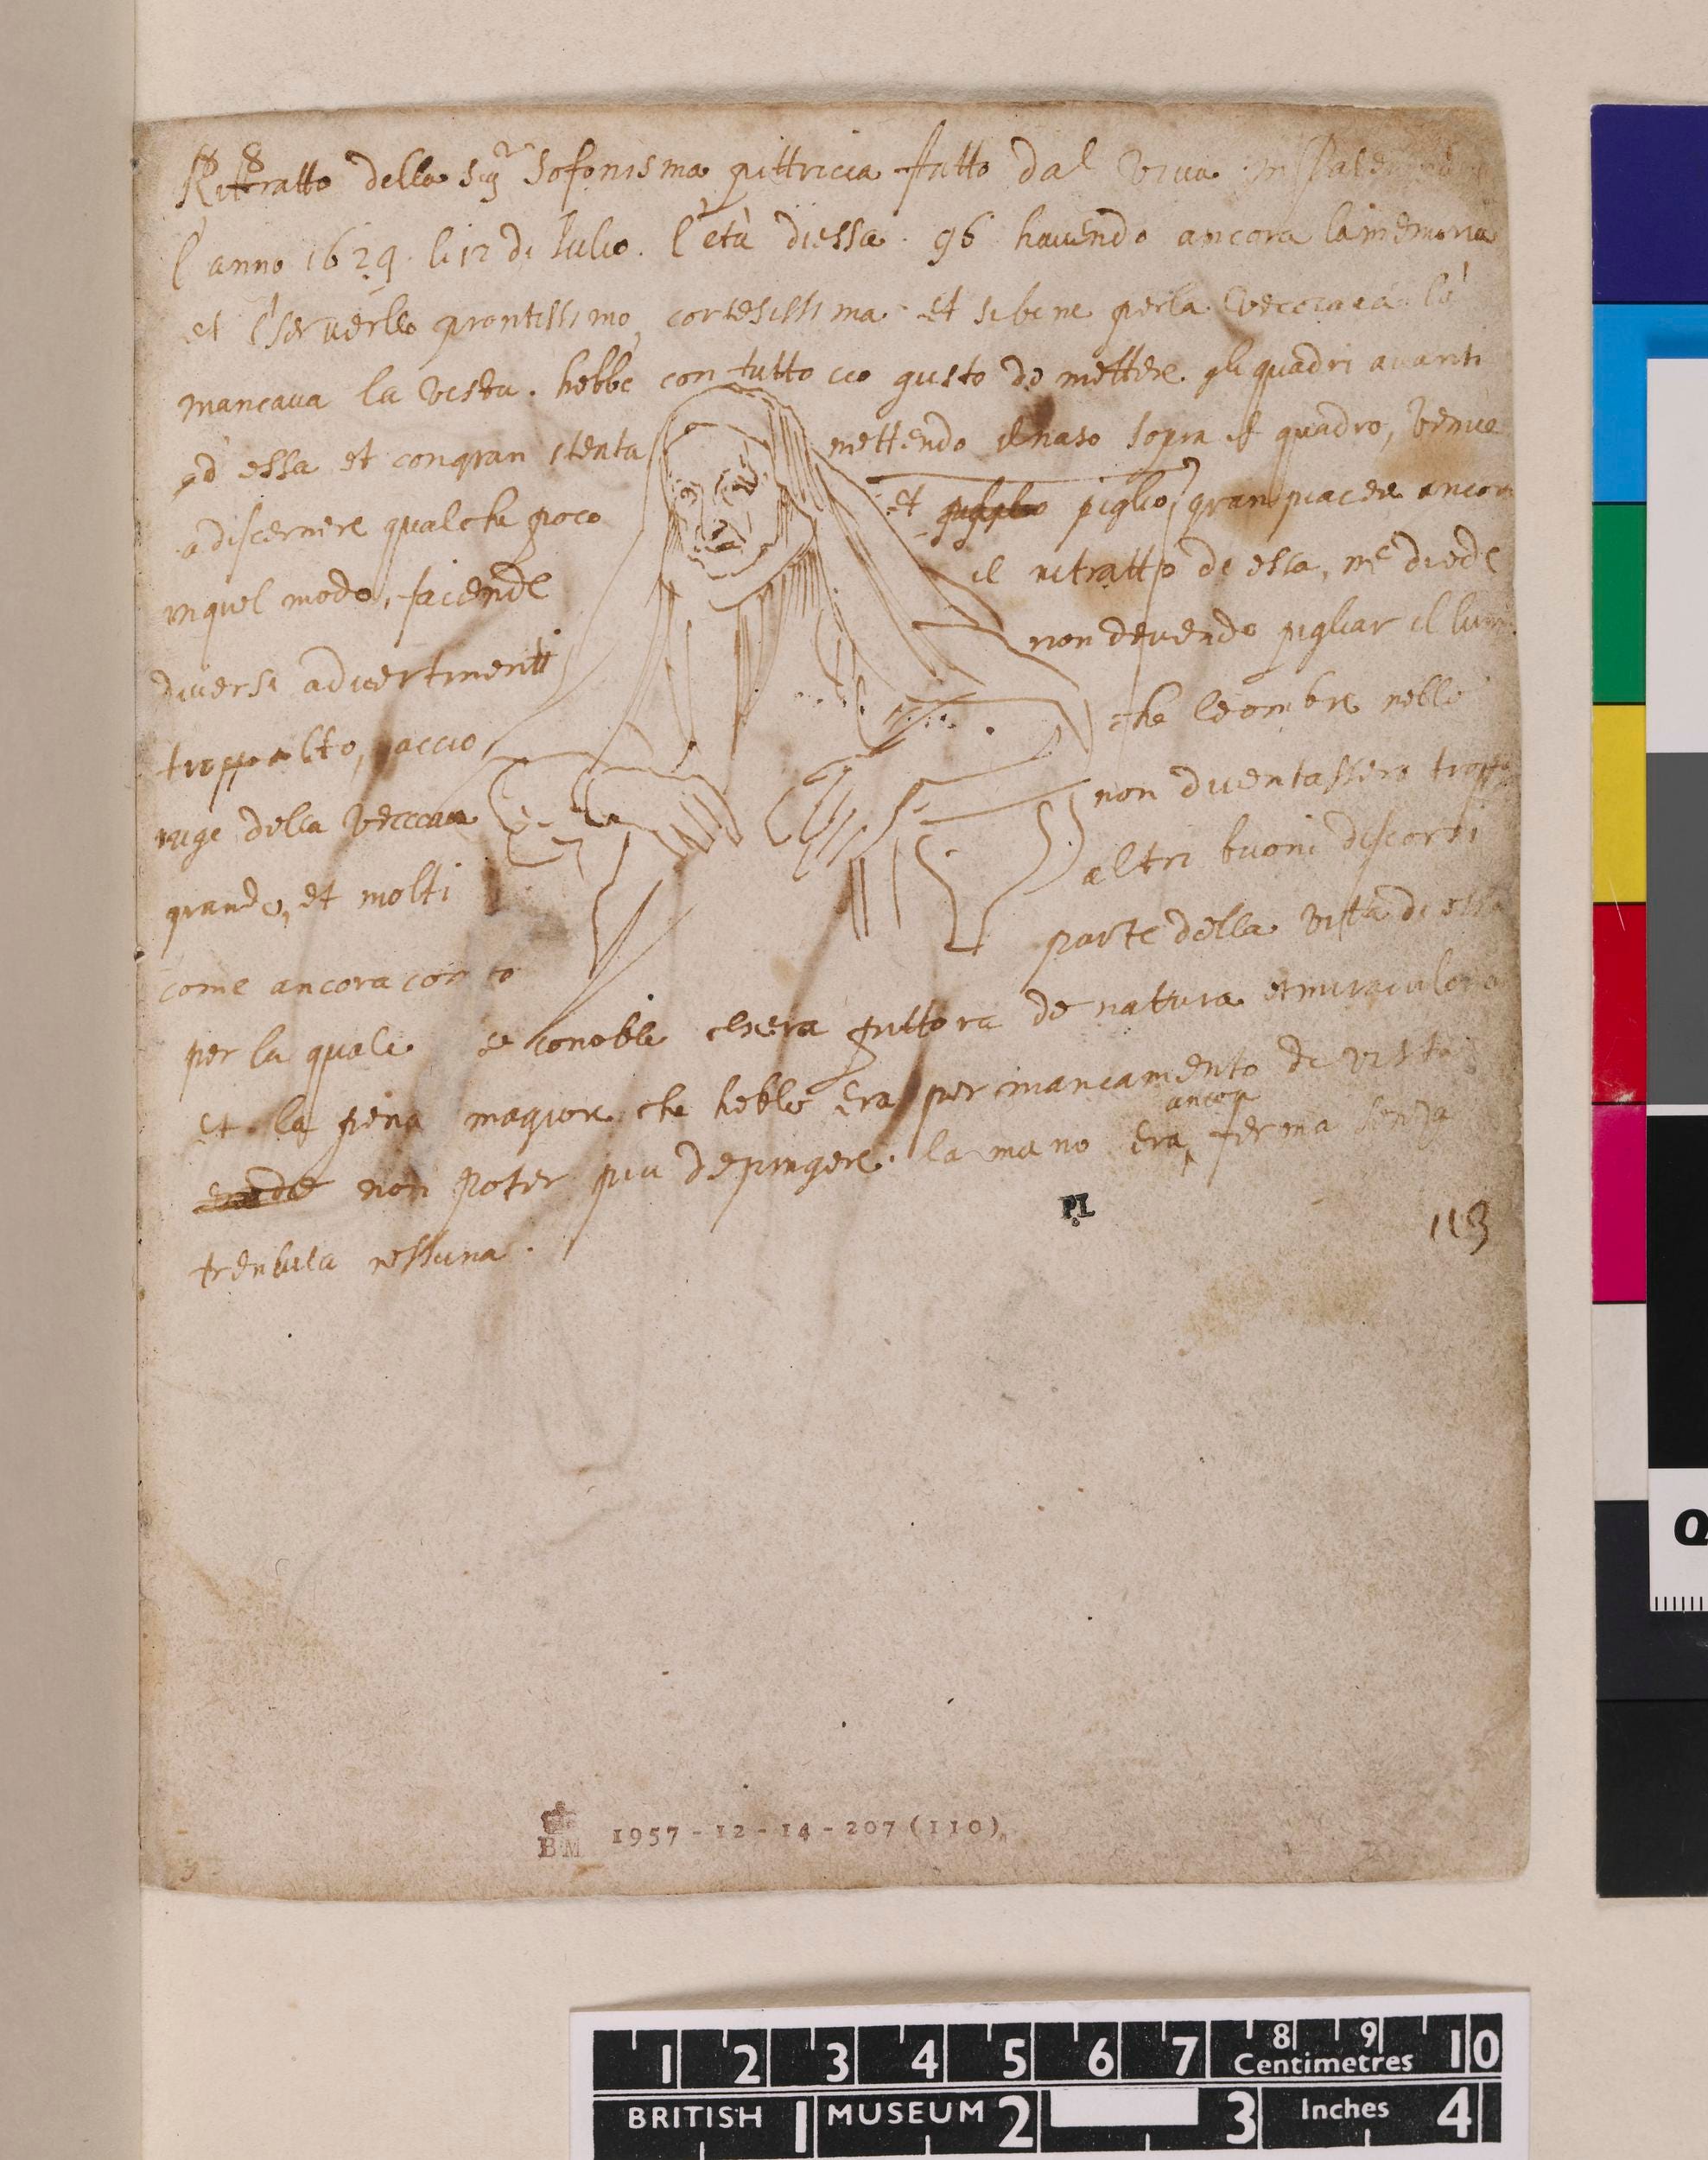 Rittratto della Sigra Sofonisma pittricia fatto dal vivo in Palermo
l'anno 1629 li 12 di Julio. l'età di essa. 96 havendo ancora la memoria
et il serverllo prontissimo, cortesissima et sibene per la vecciaia la
mancava la vista. hebbe con tutto cio gusto de mettere gli quadri avanti
ad essa et con gran stenta mettendo il naso sopra il quadro, venne
a discernere qualche poco et piglio gran piacere ancora
in quel modo, facendo il ritratto de essa, me diede
diversi advertimenti non devendo pigliar il lume
troppo alto, accio che le ombre nelle
ruge della vecciaia non diventassero troppo
grande, et molti altri buoni discorsi
come ancora conto parte della vita di essa
per la quale se conobbe ch'era pittora de natura et miraculosa
et la pena magiore che hebbe era per mancamento di vista
non poter piu depingere. la mano era ancora ferma senza
trenbula nessuna.
P.L
113
BM 1957-12-14-207(110)
1 2 3 4 5 6 7 8 9 10
Centimetres
BRITISH 1 MUSEUM 2 3 Inches 4